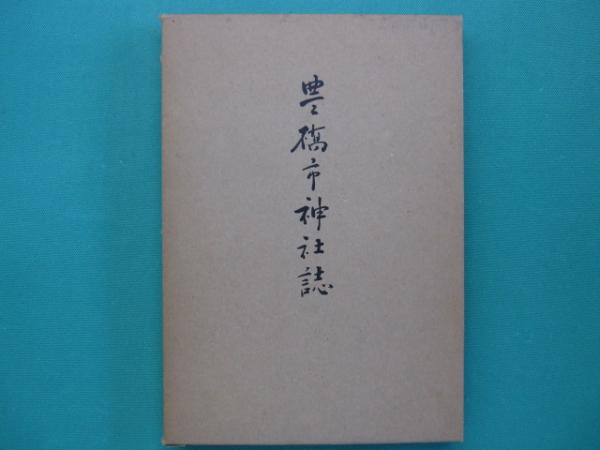 豊橋市神社誌